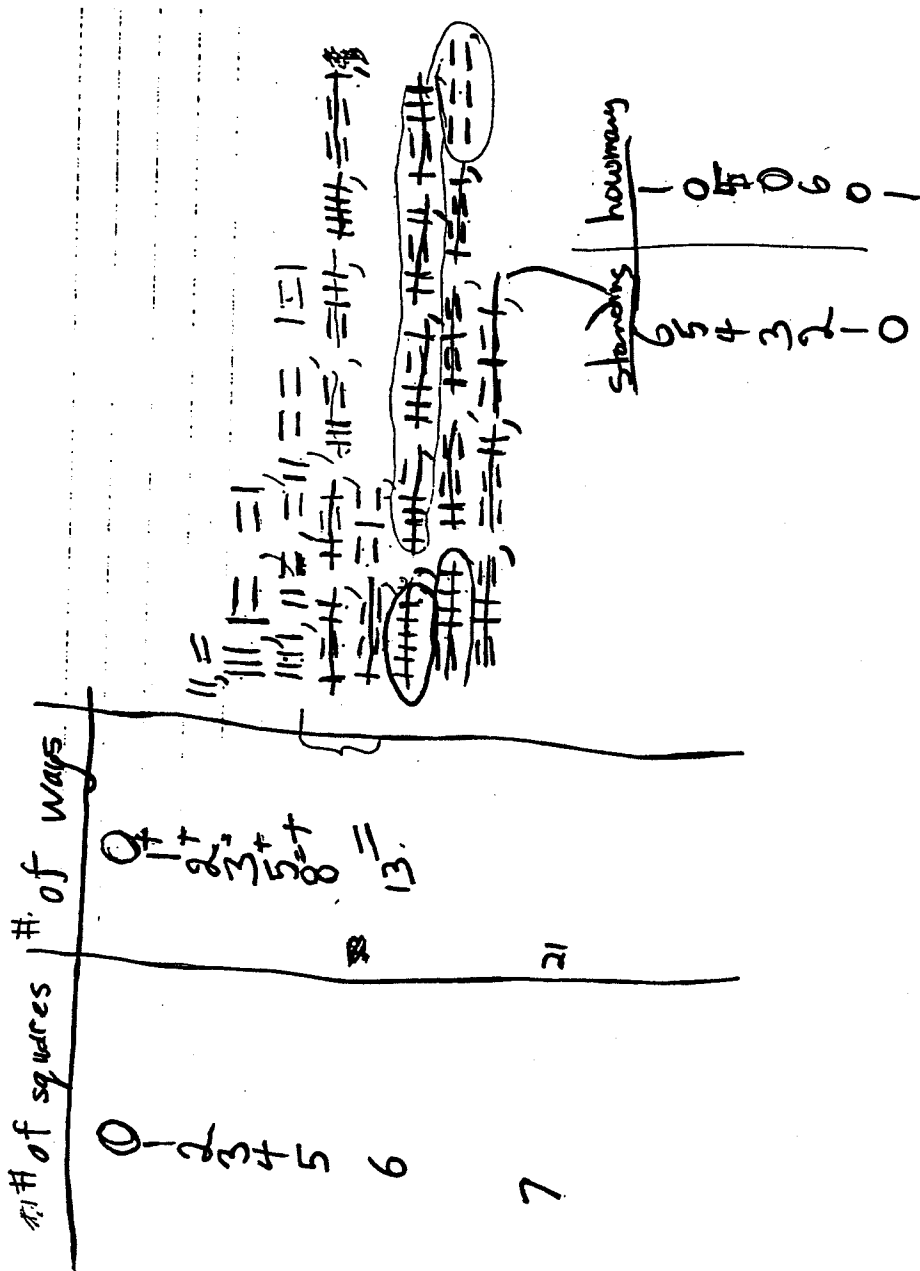 # of squares # of ways
0 0 +
1 1 +
2 2 =
3 3 +
4 5 =
5 8 +
6 13. =
7 21
Standing how many
6 1
5 0
4
3 0
2 6
1 0
0 1